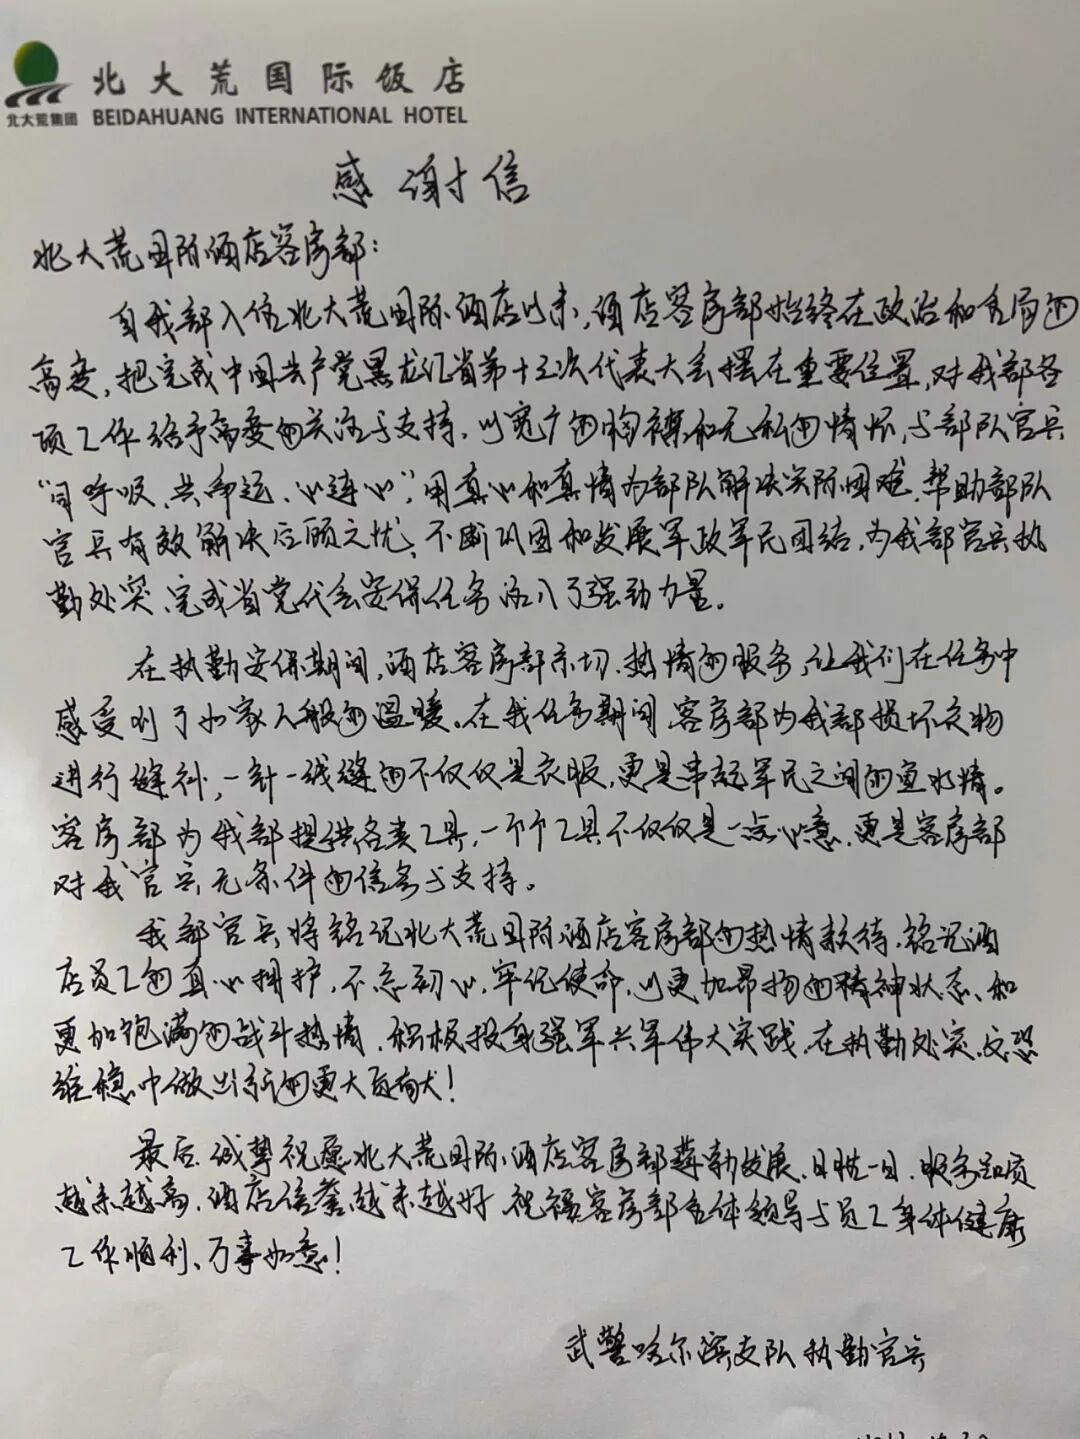 北大荒国际饭店
北大荒集团 BEIDAHUANG INTERNATIONAL HOTEL
感谢信
北大荒国际酒店客房部：
自我部入住北大荒国际酒店以来，酒店客房部始终在政治和全局的
高度，把完成中国共产党黑龙江省第十三次代表大会摆在重要位置，对我部各
项工作给予高度的关注与支持，以宽广的胸襟和无私的情怀，与部队官兵
“同呼吸、共命运、心连心”，用真心和真情为部队解决实际困难，帮助部队
官兵有效解决后顾之忧，不断巩固和发展军政军民团结，为我部官兵执
勤处突、完成省党代会安保任务注入了强劲力量。
在执勤安保期间，酒店客房部亲切、热情的服务，让我们在任务中
感受到了如家人般的温暖。在我任务期间客房部为我部损坏衣物
进行缝补，一针一线缝的不仅仅是衣服，更是串起军民之间的鱼水情。
客房部为我部提供各类工具，一个个工具不仅仅是一点心意，更是客房部
对我官兵无条件的信务与支持。
我部官兵将铭记北大荒国际酒店客房部的热情款待，铭记酒
店员工的真心拥护，不忘初心，牢记使命，以更加昂扬的精神状态、和
更加饱满的战斗热情，积极投身强军兴军伟大实践，在执勤处突、反恐
维稳中做出新的更大贡献！
最后，诚挚祝愿北大荒国际酒店客房部蓬勃发展、日胜一日，服务品质
越来越高，酒店信誉越来越好，祝福客房部全体领导与员工身体健康
工作顺利、万事如意！
武警哈尔滨支队执勤官兵